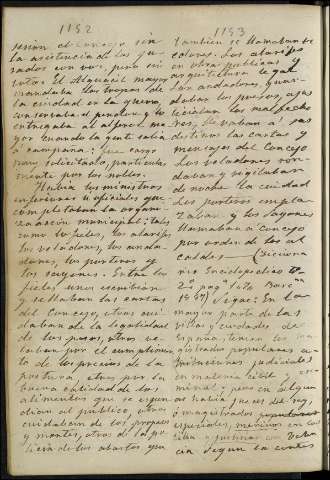 1152
sesion al concejo sin
la asistencia de los ju-
rados con voz, pero sin
voto. El Alguacil mayor
mandaba las tropas de
la ciudad en la guerra,
conservaba el pendon y lo
entregaba al alferez ma-
yor cuando la gente salia
a campaña: fue cargo
muy solicitado, particular-
mente por los nobles.
Habia los ministros
inferiores u oficiales que
completaban la organi-
zacion municipal: tales
como los fieles, los alarifes
los veladores, los anda-
dores, los porteros y
los sayones. Entre los
fieles unos escribian
y sellaban las cartas
del Concejo, otros cui-
daban de la legalidad
de los pesos, otros ve-
laban por el cumplimien-
to de los precios de la
postura, otros por la
buena calidad de los
alimentos que se espen-
dian al publico, otros
cuidaban de los propios
y montes, otros de la po-
licia de los abastos que
1153
tambien se llamaban ve-
edores. Los alarifes
en obras publicas y
arquitectura legal
Los andadores, guar-
daban los presos, ajus-
ticiaban los malhecho-
res, llevaban a sus
destinos las cartas y
mensajes del Concejo
Los veladores ron-
daban y vigilaban
de noche la ciudad
Los porteros empla-
zaban y los sayones
llamaban a Concejo
por orden de los al-
caldes — (Dicciona-
rio Enciclopedico
2º pag
1887) Sigue: En la
mayor parte de las
villas y ciudades de
España, tenian los ma-
gistrados populares a-
tribuciones judiciales
en materia civil y cri-
minal: pero en algun-
as habia jueces del rey,
o magistrados populares
especiales,
y
segun la costum